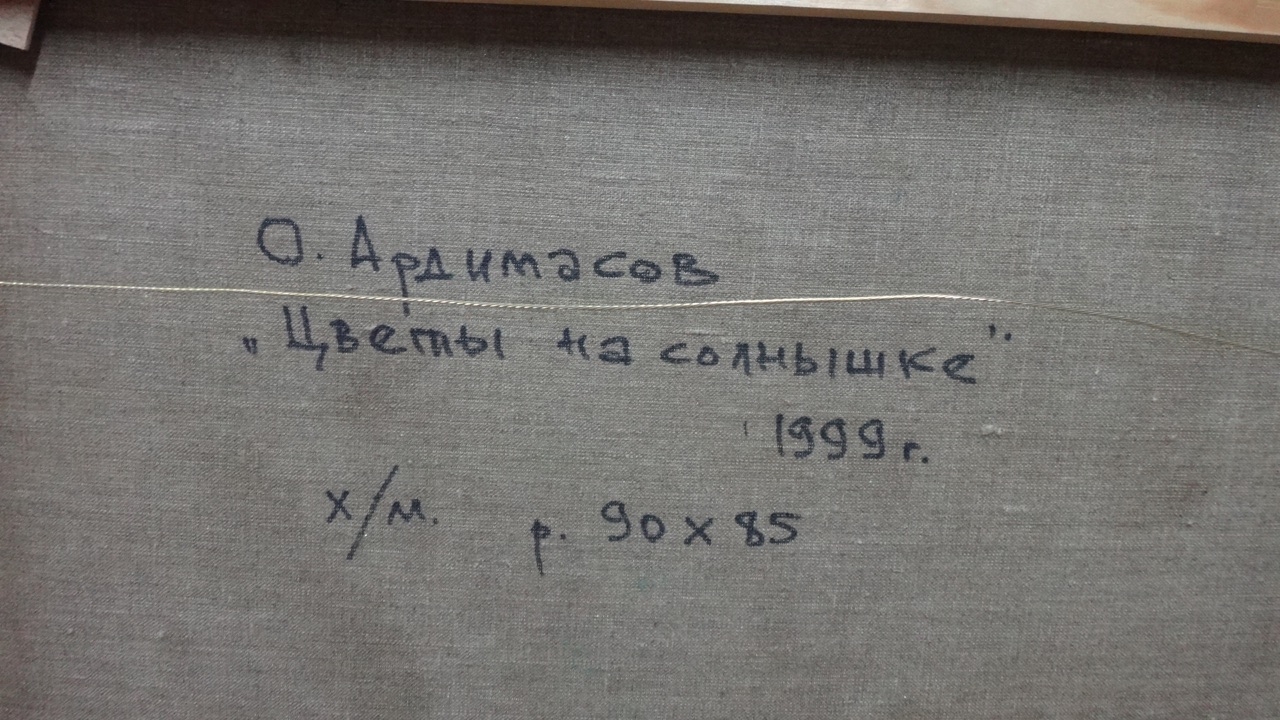 О. Ардимасов
„Цветы на солнышке”
1999 г.
х/м. р. 90 х 85